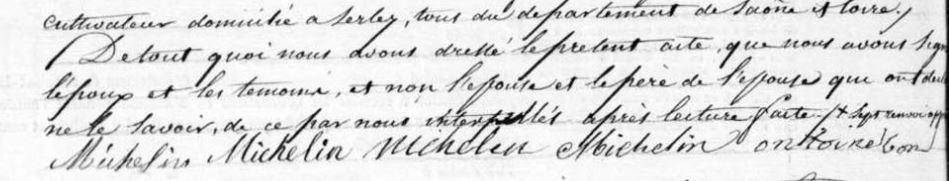 cultivateur domicilié a Serley, tous du département de Saône et loire./
De tout quoi nous avons dressé le présent acte, que nous avons sign
l'époux et les temoins, et non l'épouse et le père de l'épouse que ont décla
ne le Savoir, de ce par nous interpellés après lecture faite. Sept
Michelin Michelin Michelin Michelin